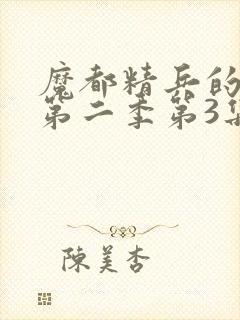 魔都精兵的
第二季第3集
陳美杏